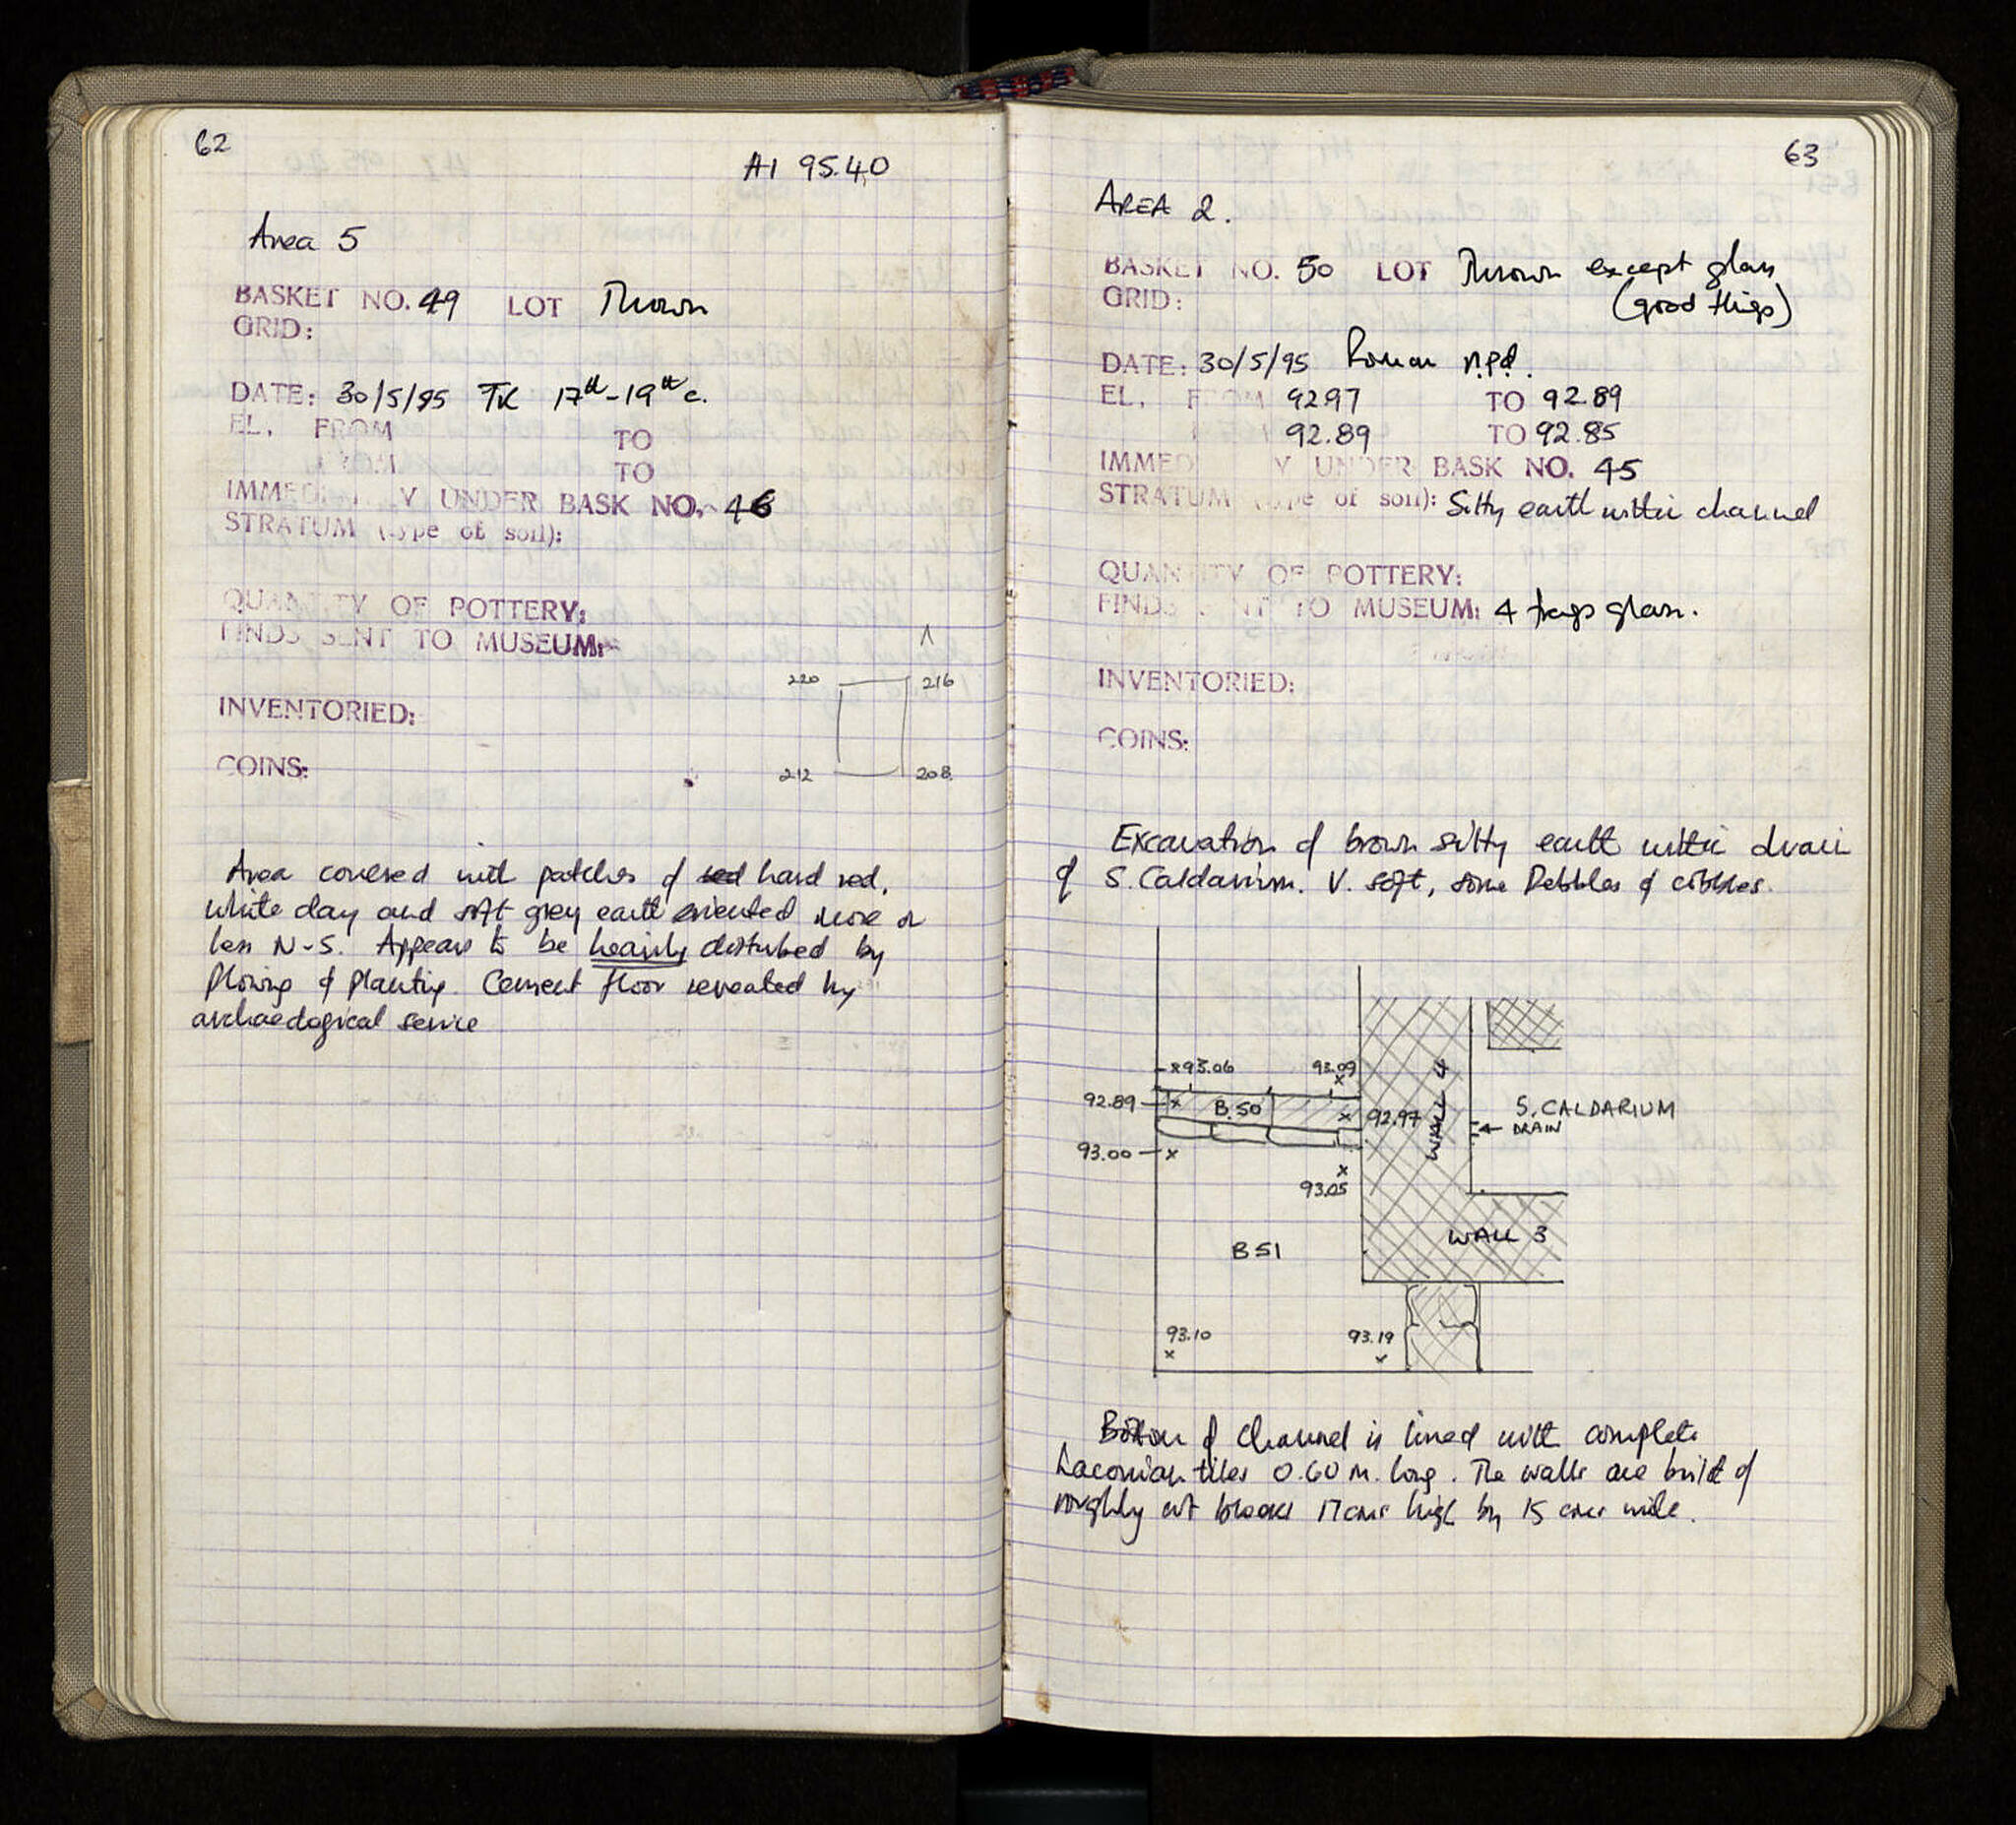 62
A1 95.40
Area 5
BASKET NO. 49 LOT Thrown
GRID:
DATE: 30/5/95 TK 17th-19th c.
EL. FROM TO
TO
UNDER BASK NO. 46
STRATUM (type of soil):
QUANTITY OF POTTERY:
FINDS SENT TO MUSEUM:
220 216
INVENTORIED:
COINS:
212 208
Area covered with patches of red hard red,
white clay and soft grey earth oriented more or
less N-S. Appears to be heavily disturbed by
plowing & planting. Cement floor revealed by
archaeological service
63
AREA 2.
BASKET NO. 50 LOT Thrown except glass
GRID: (good things)
DATE: 30/5/95 Roman n.p.d.
EL. FROM 92.97 TO 92.89
92.89 TO 92.85
UNDER BASK NO. 45
STRATUM (type of soil): Silty earth within channel
QUANTITY OF POTTERY:
FINDS SENT TO MUSEUM: 4 frags glass.
INVENTORIED:
COINS:
Excavation of brown silty earth within drain
of S. Caldarium. V. soft, some Pebbles & cobbles.
93.06 93.09
92.89 B.50 92.97 WALL 4 S. CALDARIUM
DRAIN
93.00
93.05
B 51 WALL 3
93.10 93.19
Bottom of channel is lined with complete
Laconian tiles 0.60 m. long. The walls are build of
roughly cut blocks 17 cms high by 15 cms wide.